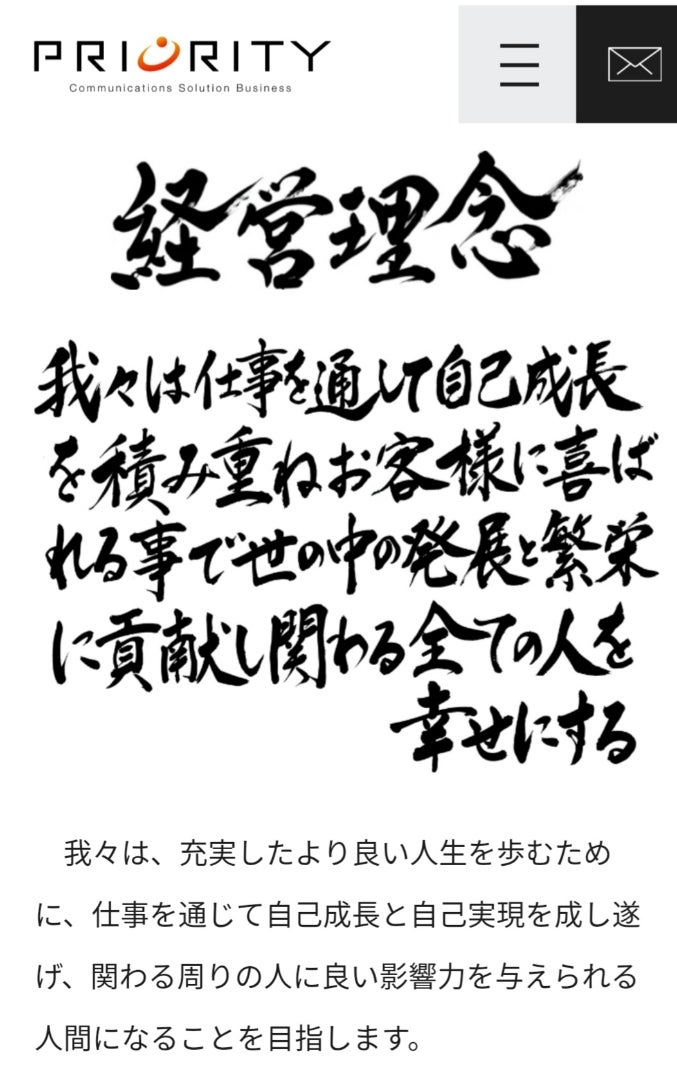 PRIORITY
Communications Solution Business
経営理念
我々は仕事を通して自己成長
を積み重ねお客様に喜ば
れる事で世の中の発展と繁栄
に貢献し関わる全ての人を
幸せにする
我々は、充実したより良い人生を歩むため
に、仕事を通じて自己成長と自己実現を成し遂
げ、関わる周りの人に良い影響力を与えられる
人間になることを目指します。